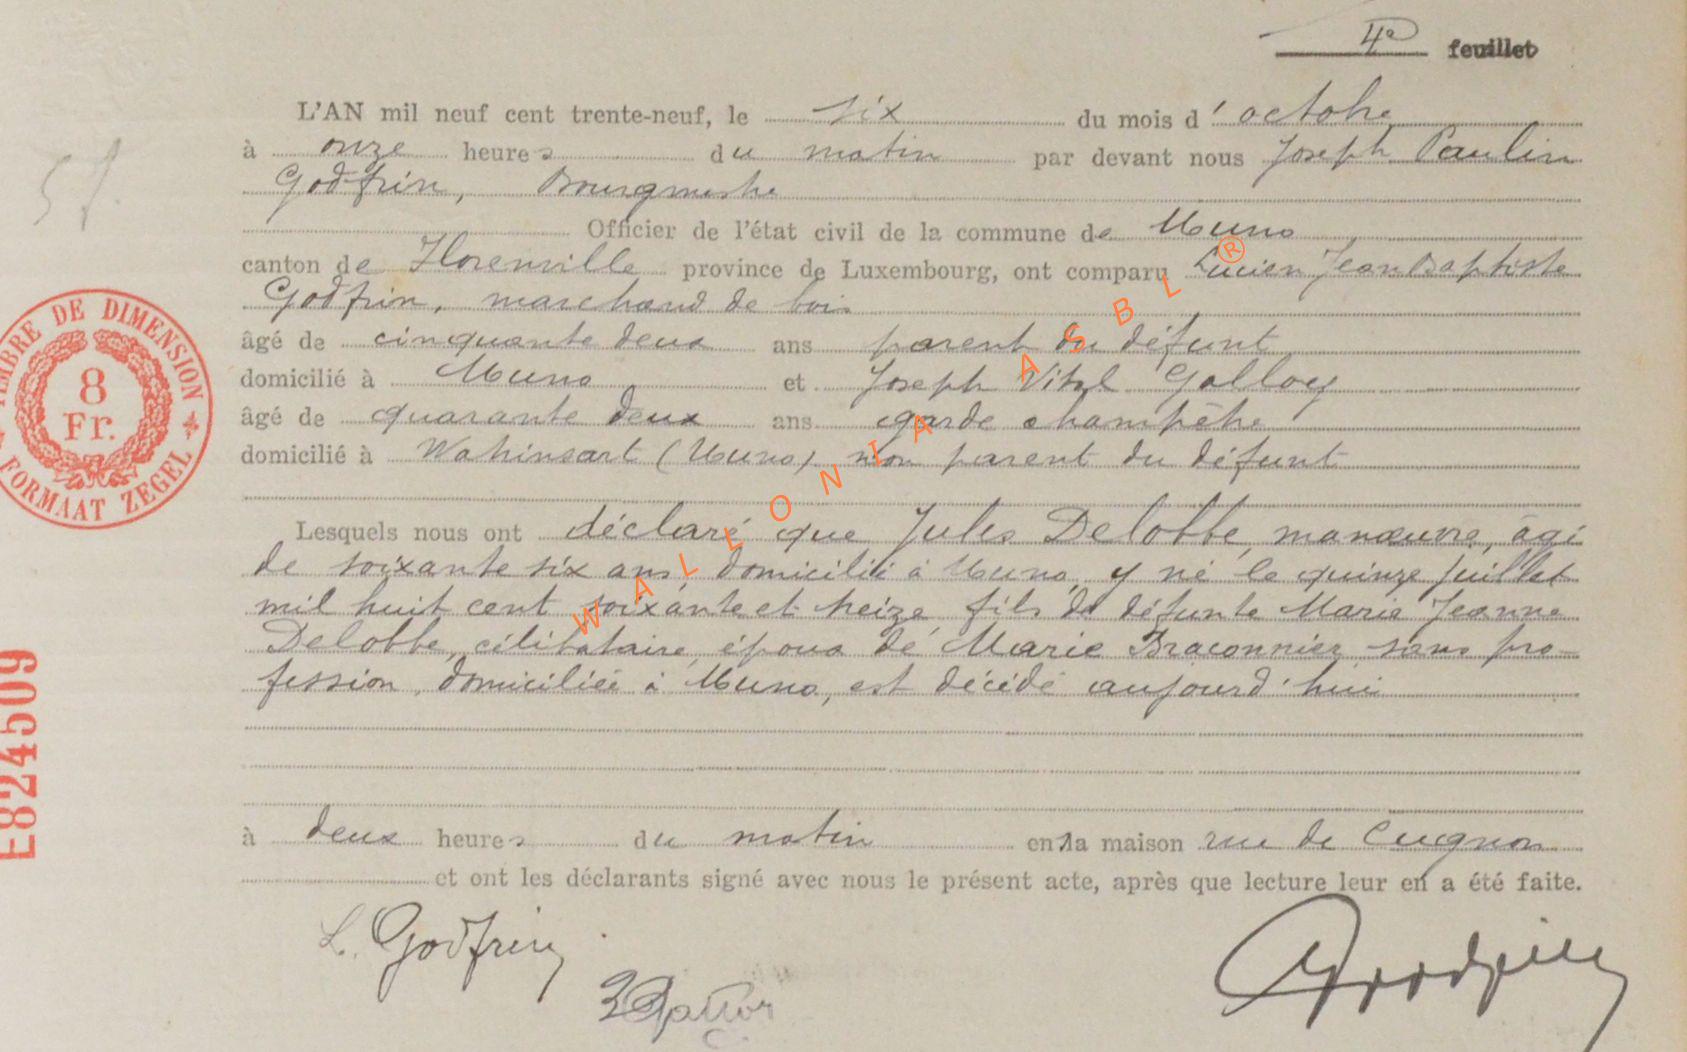 4e feuillet
L'AN mil neuf cent trente-neuf, le six du mois d'octobre
à onze heures du matin par devant nous Joseph Paulin
Godfrin, Bourgmestre
Officier de l'état civil de la commune de Muno
canton de Florenville province de Luxembourg, ont comparu Lucien Jean Baptiste
Godfrin, marchand de bois
âgé de cinquante deux ans parent du défunt
domicilié à Muno et Joseph Vital Galloy
âgé de quarante deux ans garde champêtre
domicilié à Wahinsart (Muno) non parent du défunt
Lesquels nous ont déclaré que Jules Delobbe, manœuvre, âgé
de soixante six ans, domicilié à Muno, y né le quinze juillet
mil huit cent soixante et treize, fils de défunte Marie Jeanne
Delobbe, célibataire, époux de Marie Braconnier, sans pro-
fession, domiciliée à Muno, est décédé aujourd'hui
à deux heures du matin en la maison rue de Cugnon
et ont les déclarants signé avec nous le présent acte, après que lecture leur en a été faite.
L. Godfrin
TIMBRE DE DIMENSION
8
Fr.
FORMAAT ZEGEL
E824509
WALLONIA ASBL ®